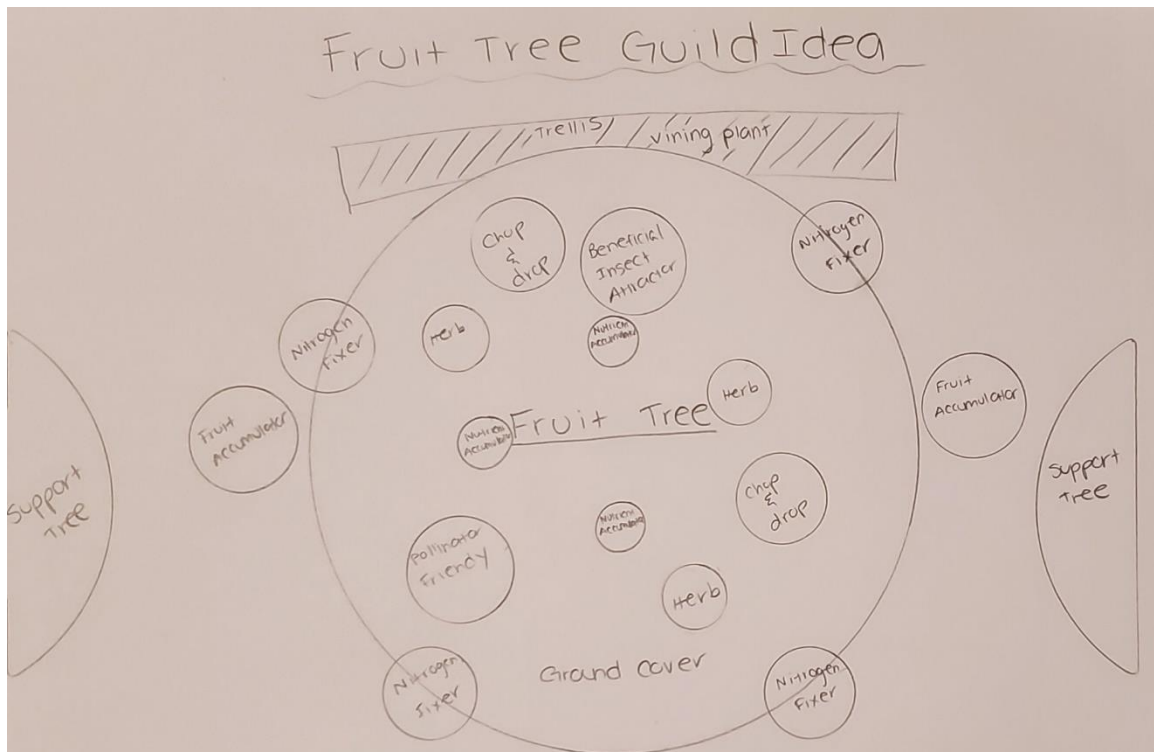 Fruit Tree Guild Idea
Trellis vining plant
Chop
&
drop
Beneficial
Insect
Attractor
Nitrogen
Fixer
Nitrogen
Fixer
Herb
Nutrient
Accumulator
Herb
Fruit
Accumulator
Fruit
Accumulator
Nutrient
Accumulator
Fruit Tree
Support
Tree
Support
Tree
Chop
&
drop
Nutrient
Accumulator
Pollinator
Friendy
Herb
Grand cover
Nitrogen
fixer
Nitrogen
Fixer